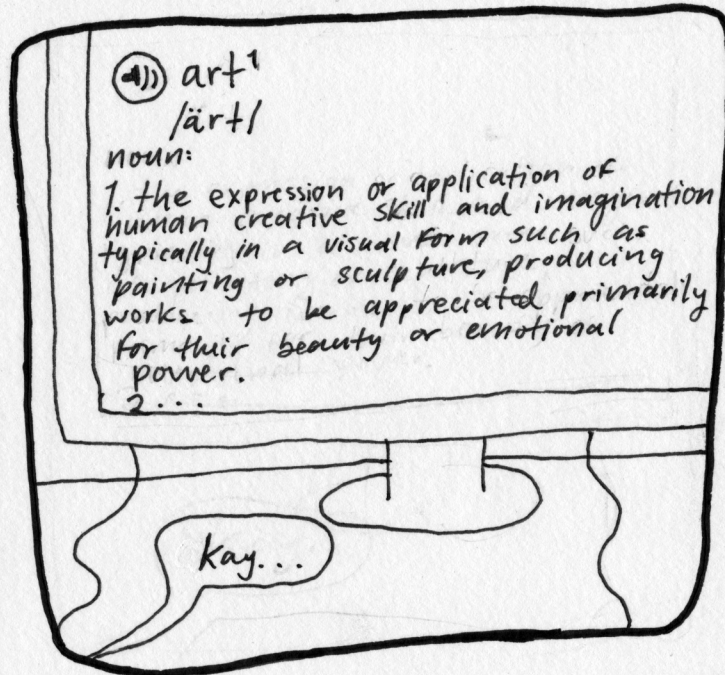 art¹
/ärt/
noun:
1. the expression or application of
human creative skill and imagination
typically in a visual form such as
painting or sculpture, producing
works to be appreciated primarily
for their beauty or emotional
power.
2...
Kay...